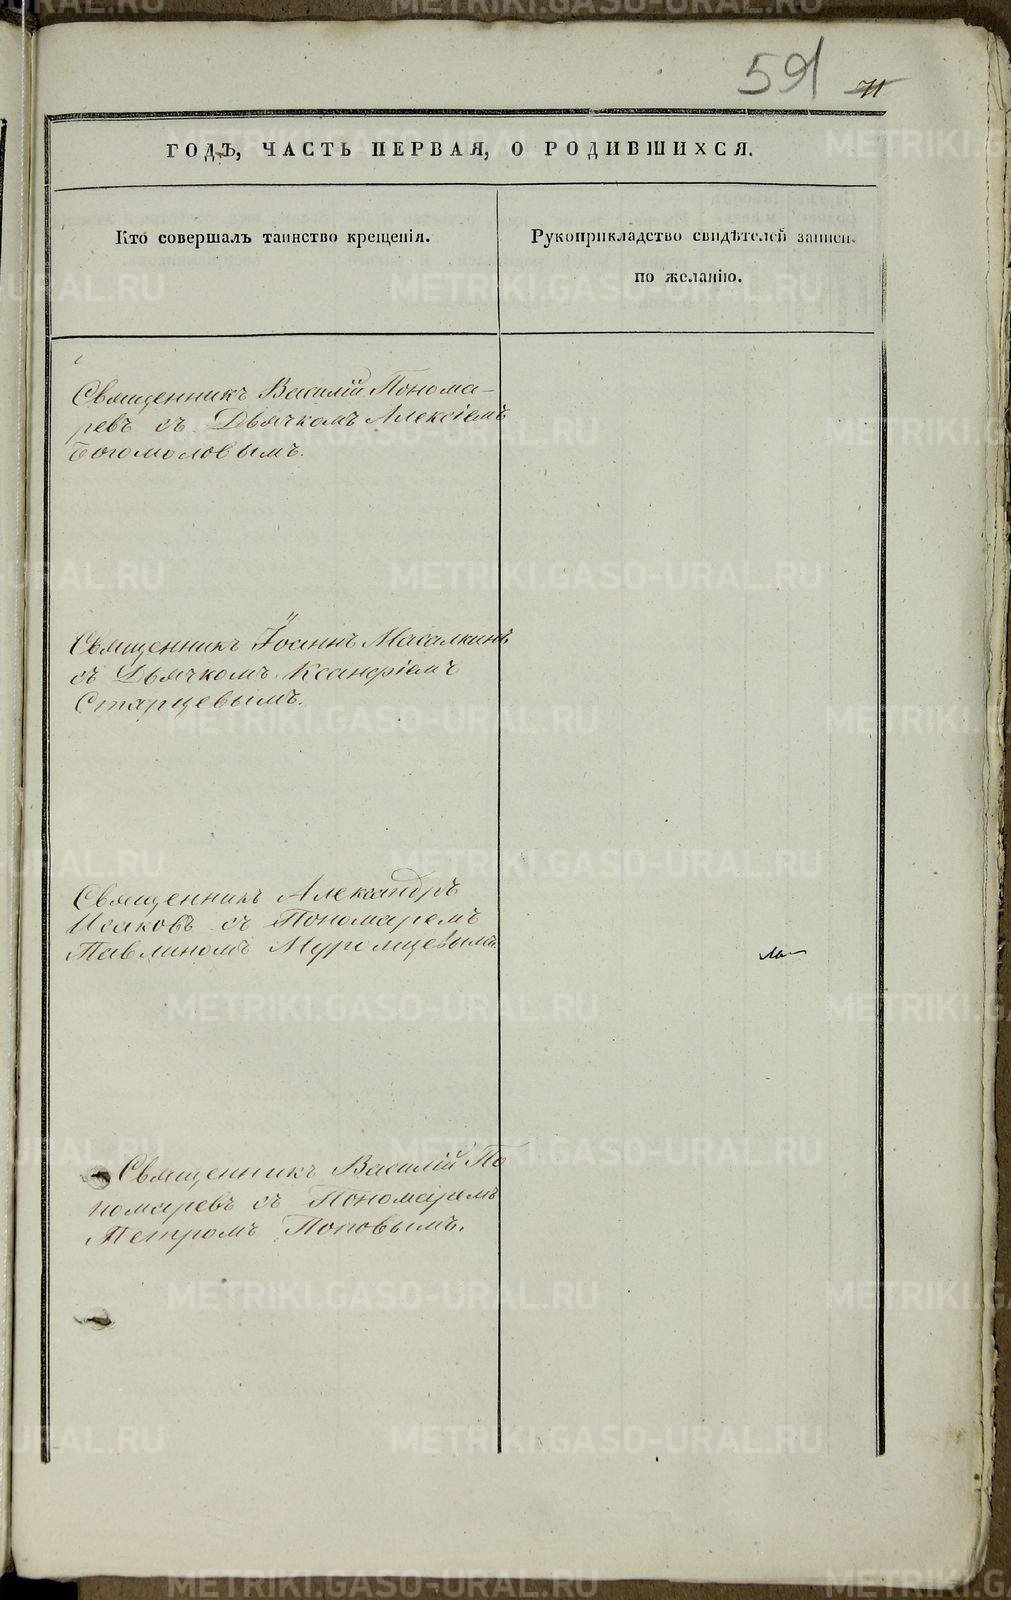 591 71
ГОДЪ, ЧАСТЬ ПЕРВАЯ, О РОДИВШИХСЯ.
Кто совершалъ таинство крещенія.
Рукоприкладство свидѣтелей записи
по желанію.
Священникъ Василій Понома-
ревъ съ Дьячкомъ Алексіемъ
Богомоловымъ.
Священникъ Іоаннъ Масалкинъ
съ Дьячкомъ Ксанфіемъ
Старцевымъ.
Священникъ Александръ
Исаковъ съ Пономаремъ
Павлиномъ Муромцевымъ
Священникъ Василій По
номаревъ съ Пономаремъ
Петромъ Поповымъ.
METRIKI.GASO-URAL.RU